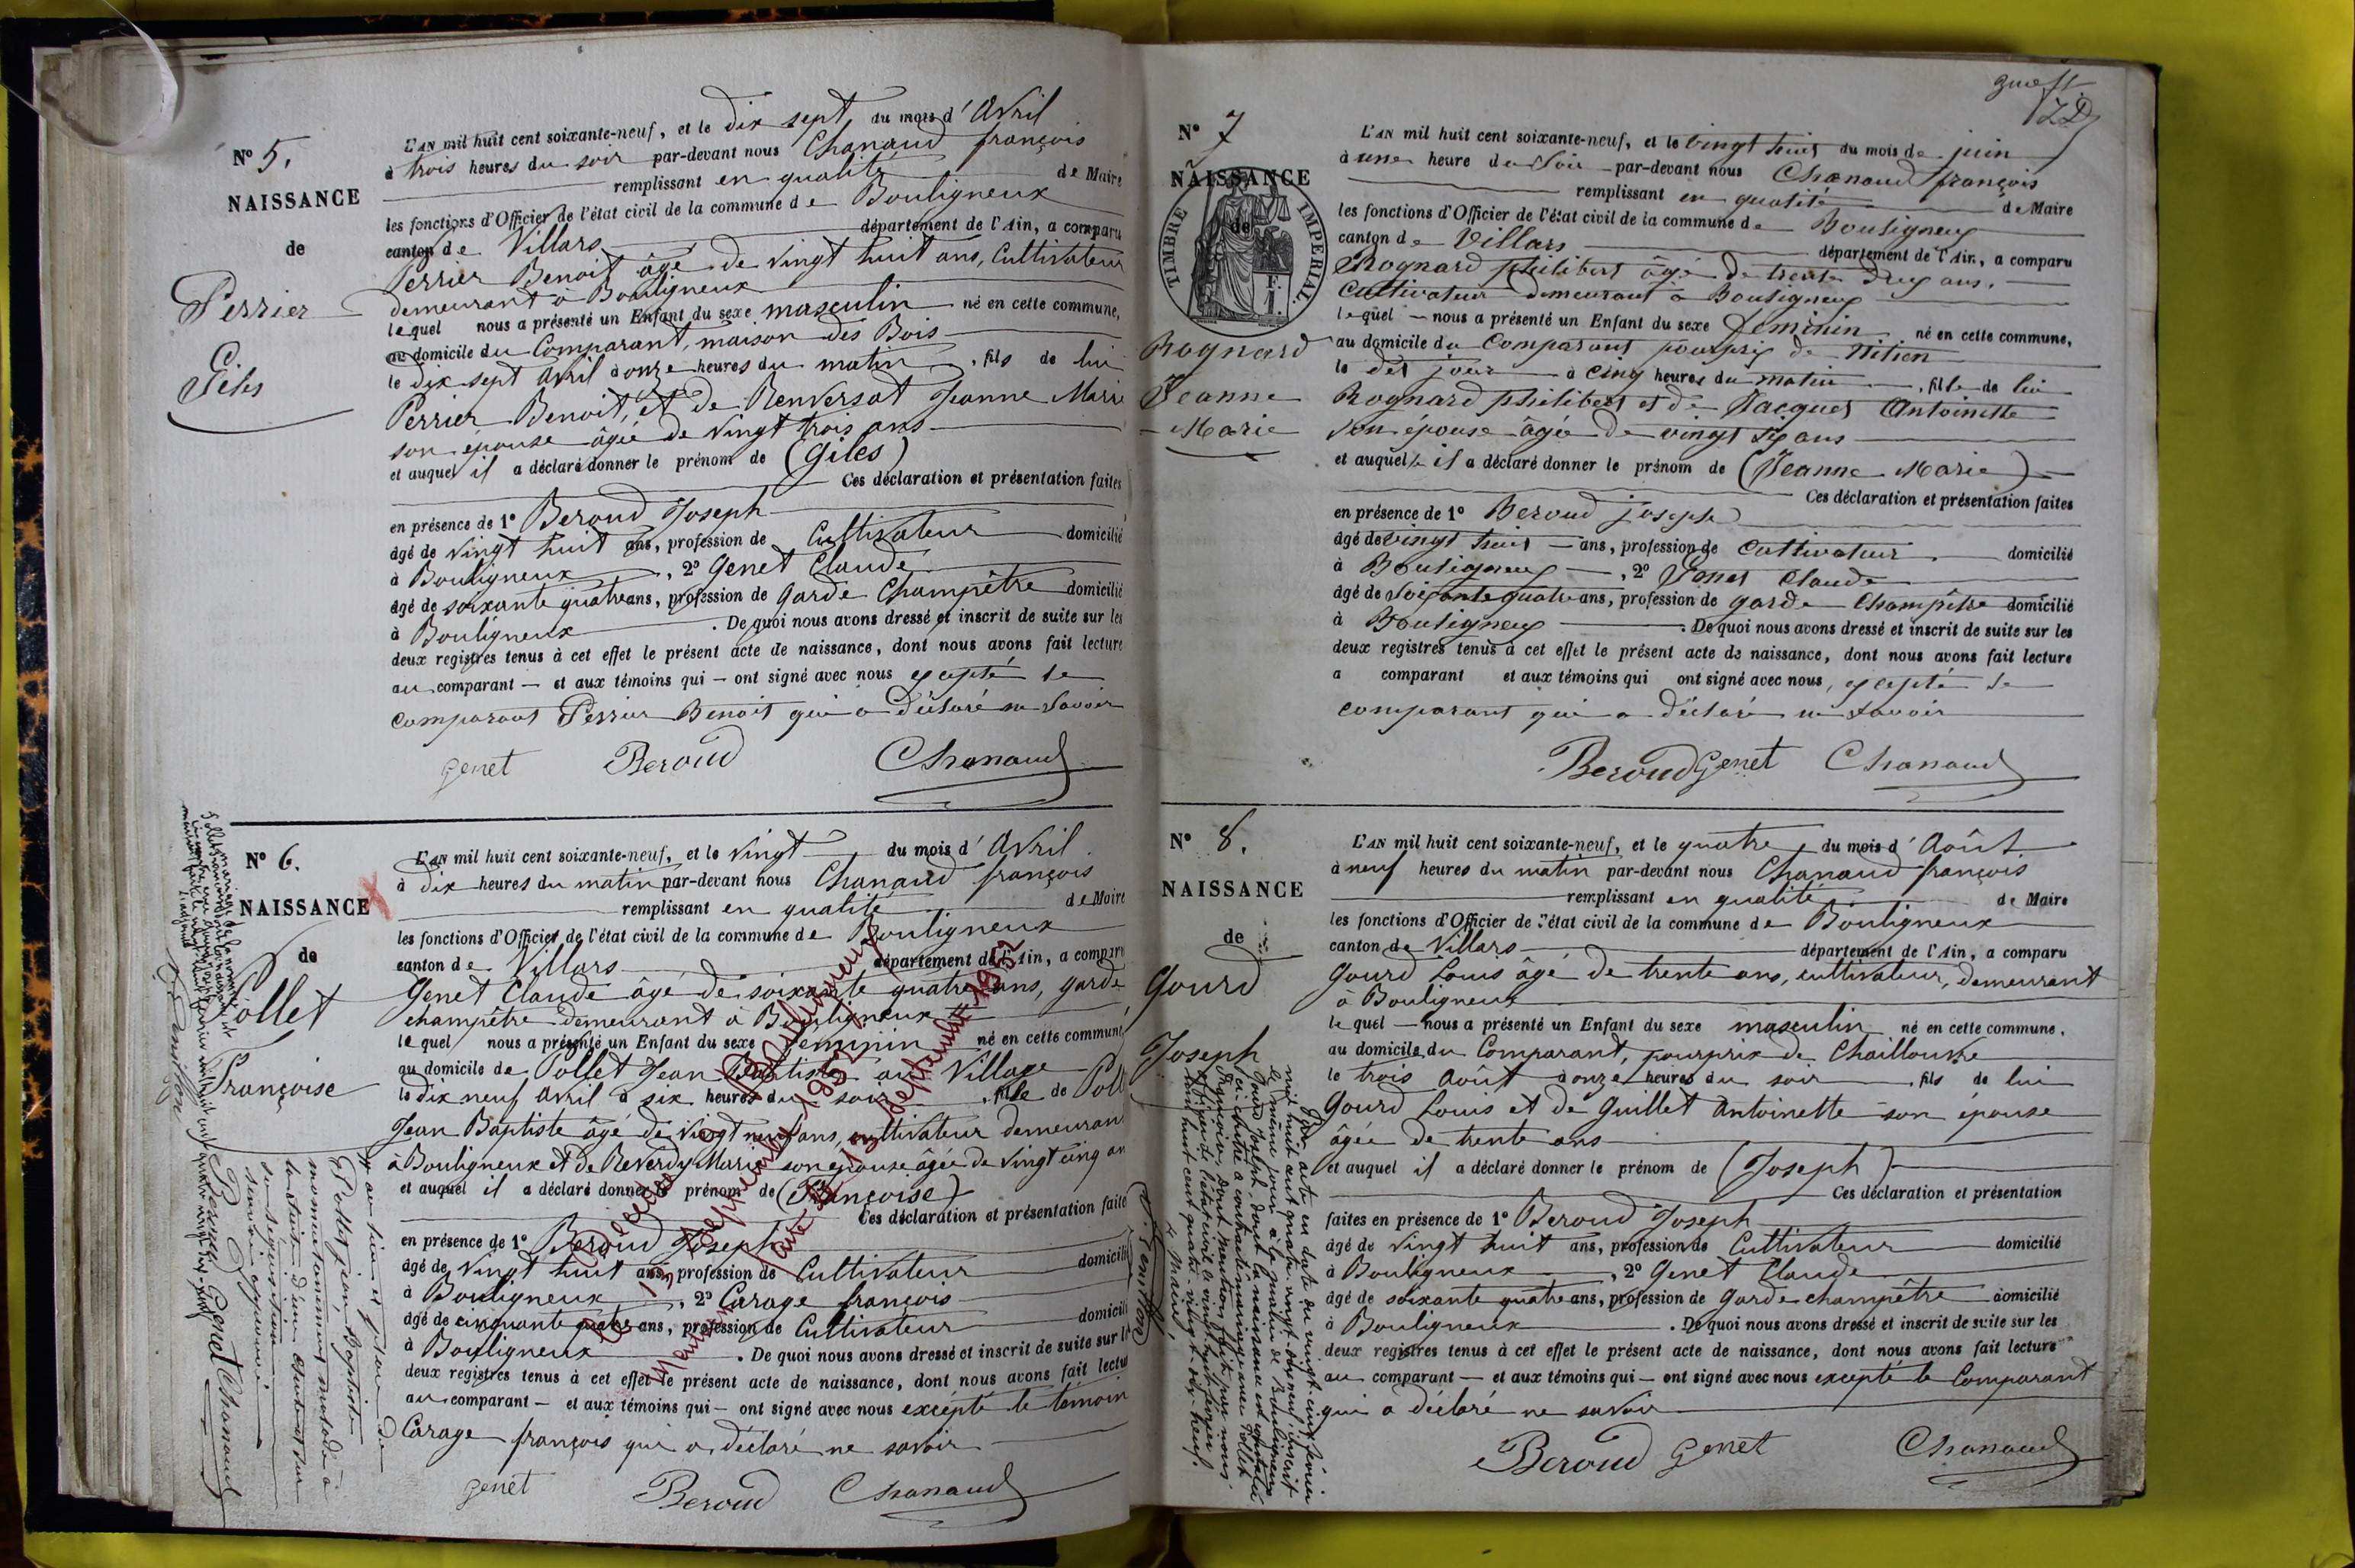 N° 5.
NAISSANCE
de
Perrier
Giles
L'AN mil huit cent soixante-neuf, et le dix sept du mois d'Avril
à trois heures du soir par-devant nous Chanaud françois
remplissant en qualité de Maire
les fonctions d'Officier de l'état civil de la commune de Bouligneux
canton de Villars département de l'Ain, a comparu
Perrier Benoit âgé de vingt huit ans, Cultivateur
demeurant à Bouligneux
lequel nous a présenté un Enfant du sexe masculin né en cette commune,
au domicile du Comparant, maison des Bois
le dix sept Avril à onze heures du matin, fils de lui
Perrier Benoit, et de Renversat Jeanne Marie
son épouse âgée de vingt trois ans
et auquel il a déclaré donner le prénom de (Giles)
Ces déclaration et présentation faites
en présence de 1° Beroud Joseph
âgé de vingt huit ans, profession de Cultivateur domicilié
à Bouligneux, 2° Genet Claude
âgé de soixante quatre ans, profession de Garde Champêtre domicilié
à Bouligneux. De quoi nous avons dressé et inscrit de suite sur les
deux registres tenus à cet effet le présent acte de naissance, dont nous avons fait lecture
au comparant — et aux témoins qui — ont signé avec nous excepté le
comparant Perrier Benoit qui a déclaré ne savoir
Genet Beroud Chanaud
N° 6.
NAISSANCE
de
Pollet
Françoise
L'AN mil huit cent soixante-neuf, et le vingt du mois d'Avril
à dix heures du matin par-devant nous Chanaud françois
remplissant en qualité de Maire
les fonctions d'Officier de l'état civil de la commune de Bouligneux
canton de Villars département de l'Ain, a comparu
Genet Claude âgé de soixante quatre ans, garde
champêtre demeurant à Bouligneux #
lequel nous a présenté un Enfant du sexe feminin né en cette commune
au domicile de Pollet Jean Baptiste au Village
le dix neuf Avril à six heures du soir, fille de Poll
Jean Baptiste âgé de vingt neuf ans, cultivateur demeurant
à Bouligneux et de Reverdy Marie son épouse âgée de vingt cinq an
et auquel il a déclaré donner le prénom de (Françoise)
Ces déclaration et présentation faite
en présence de 1° Beroud Joseph
âgé de vingt huit ans, profession de Cultivateur domicilié
à Bouligneux, 2° Carage françois
âgé de cinquante quatre ans, profession de Cultivateur domicili
à Bouligneux. De quoi nous avons dressé et inscrit de suite sur l
deux registres tenus à cet effet le présent acte de naissance, dont nous avons fait lectu
au comparant — et aux témoins qui — ont signé avec nous excepté le témoin
Carage françois qui a déclaré ne savoir
Genet Beroud Chanaud
Décédée à Bouligneux
le 12 septembre 1952
Mention faite le 13 septembre 1952
# au lieu et place de
Pollet Jean Baptiste
momentanément malade à
Beroud Genet Chanaud
N° 7
NAISSANCE
de
TIMBRE IMPERIAL
Rognard
Jeanne
Marie
L'AN mil huit cent soixante-neuf, et le vingt huit du mois de juin
à une heure du Soir par-devant nous Chanaud françois
remplissant en qualité de Maire
les fonctions d'Officier de l'état civil de la commune de Bouligneux
canton de Villars département de l'Ain, a comparu
Rognard philibert âgé de trente deux ans,
Cultivateur demeurant à Bouligneux
lequel — nous a présenté un Enfant du sexe feminin né en cette commune,
au domicile du Comparant pourpris de
le dit jour à cinq heures du matin, fille de lui
Rognard philibert et de Jacquet Antoinette
son épouse âgée de vingt six ans
et auquel il a déclaré donner le prénom de (Jeanne Marie)
Ces déclaration et présentation faites
en présence de 1° Beroud joseph
âgé de vingt huit — ans, profession de cultivateur domicilié
à Bouligneux —, 2° Genet Claude
âgé de Soixante quatre ans, profession de garde Champêtre domicilié
à Bouligneux. De quoi nous avons dressé et inscrit de suite sur les
deux registres tenus à cet effet le présent acte de naissance, dont nous avons fait lecture
a comparant et aux témoins qui ont signé avec nous, excepté le
comparant qui a déclaré ne savoir
Beroud Genet Chanaud
N° 8.
NAISSANCE
de
Gourd
Joseph
L'AN mil huit cent soixante-neuf, et le quatre du mois d'Août
à neuf heures du matin par-devant nous Chanaud françois
remplissant en qualité de Maire
les fonctions d'Officier de l'état civil de la commune de Bouligneux
canton de Villars département de l'Ain, a comparu
Gourd Louis âgé de trente ans, cultivateur, demeurant
à Bouligneux
lequel — nous a présenté un Enfant du sexe masculin né en cette commune,
au domicile du Comparant, pourpris de Chaillouvre
le trois Août à onze heures du soir, fils de lui
Gourd Louis et de Guillet Antoinette son épouse
âgée de trente ans
et auquel il a déclaré donner le prénom de (Joseph)
Ces déclaration et présentation
faites en présence de 1° Beroud Joseph
âgé de vingt huit ans, profession de Cultivateur domicilié
à Bouligneux, 2° Genet Claude
âgé de soixante quatre ans, profession de Garde champêtre domicilié
à Bouligneux. De quoi nous avons dressé et inscrit de suite sur les
deux registres tenus à cet effet le présent acte de naissance, dont nous avons fait lecture
au comparant — et aux témoins qui — ont signé avec nous excepté le Comparant
qui a déclaré ne savoir
Beroud Genet Chanaud
Par acte en date du vingt-cinq février
mil huit cent quatre-vingt-dix-neuf, inscrit
le même jour à la mairie de Bouligneux
Gourd Joseph, dont la naissance est constatée
ci-contre a contracté mariage avec Pollet
Françoise, dont mention faite par nous
officier de l'état civil le vingt-huit février
mil huit cent quatre-vingt-dix-neuf.
Le Maire,